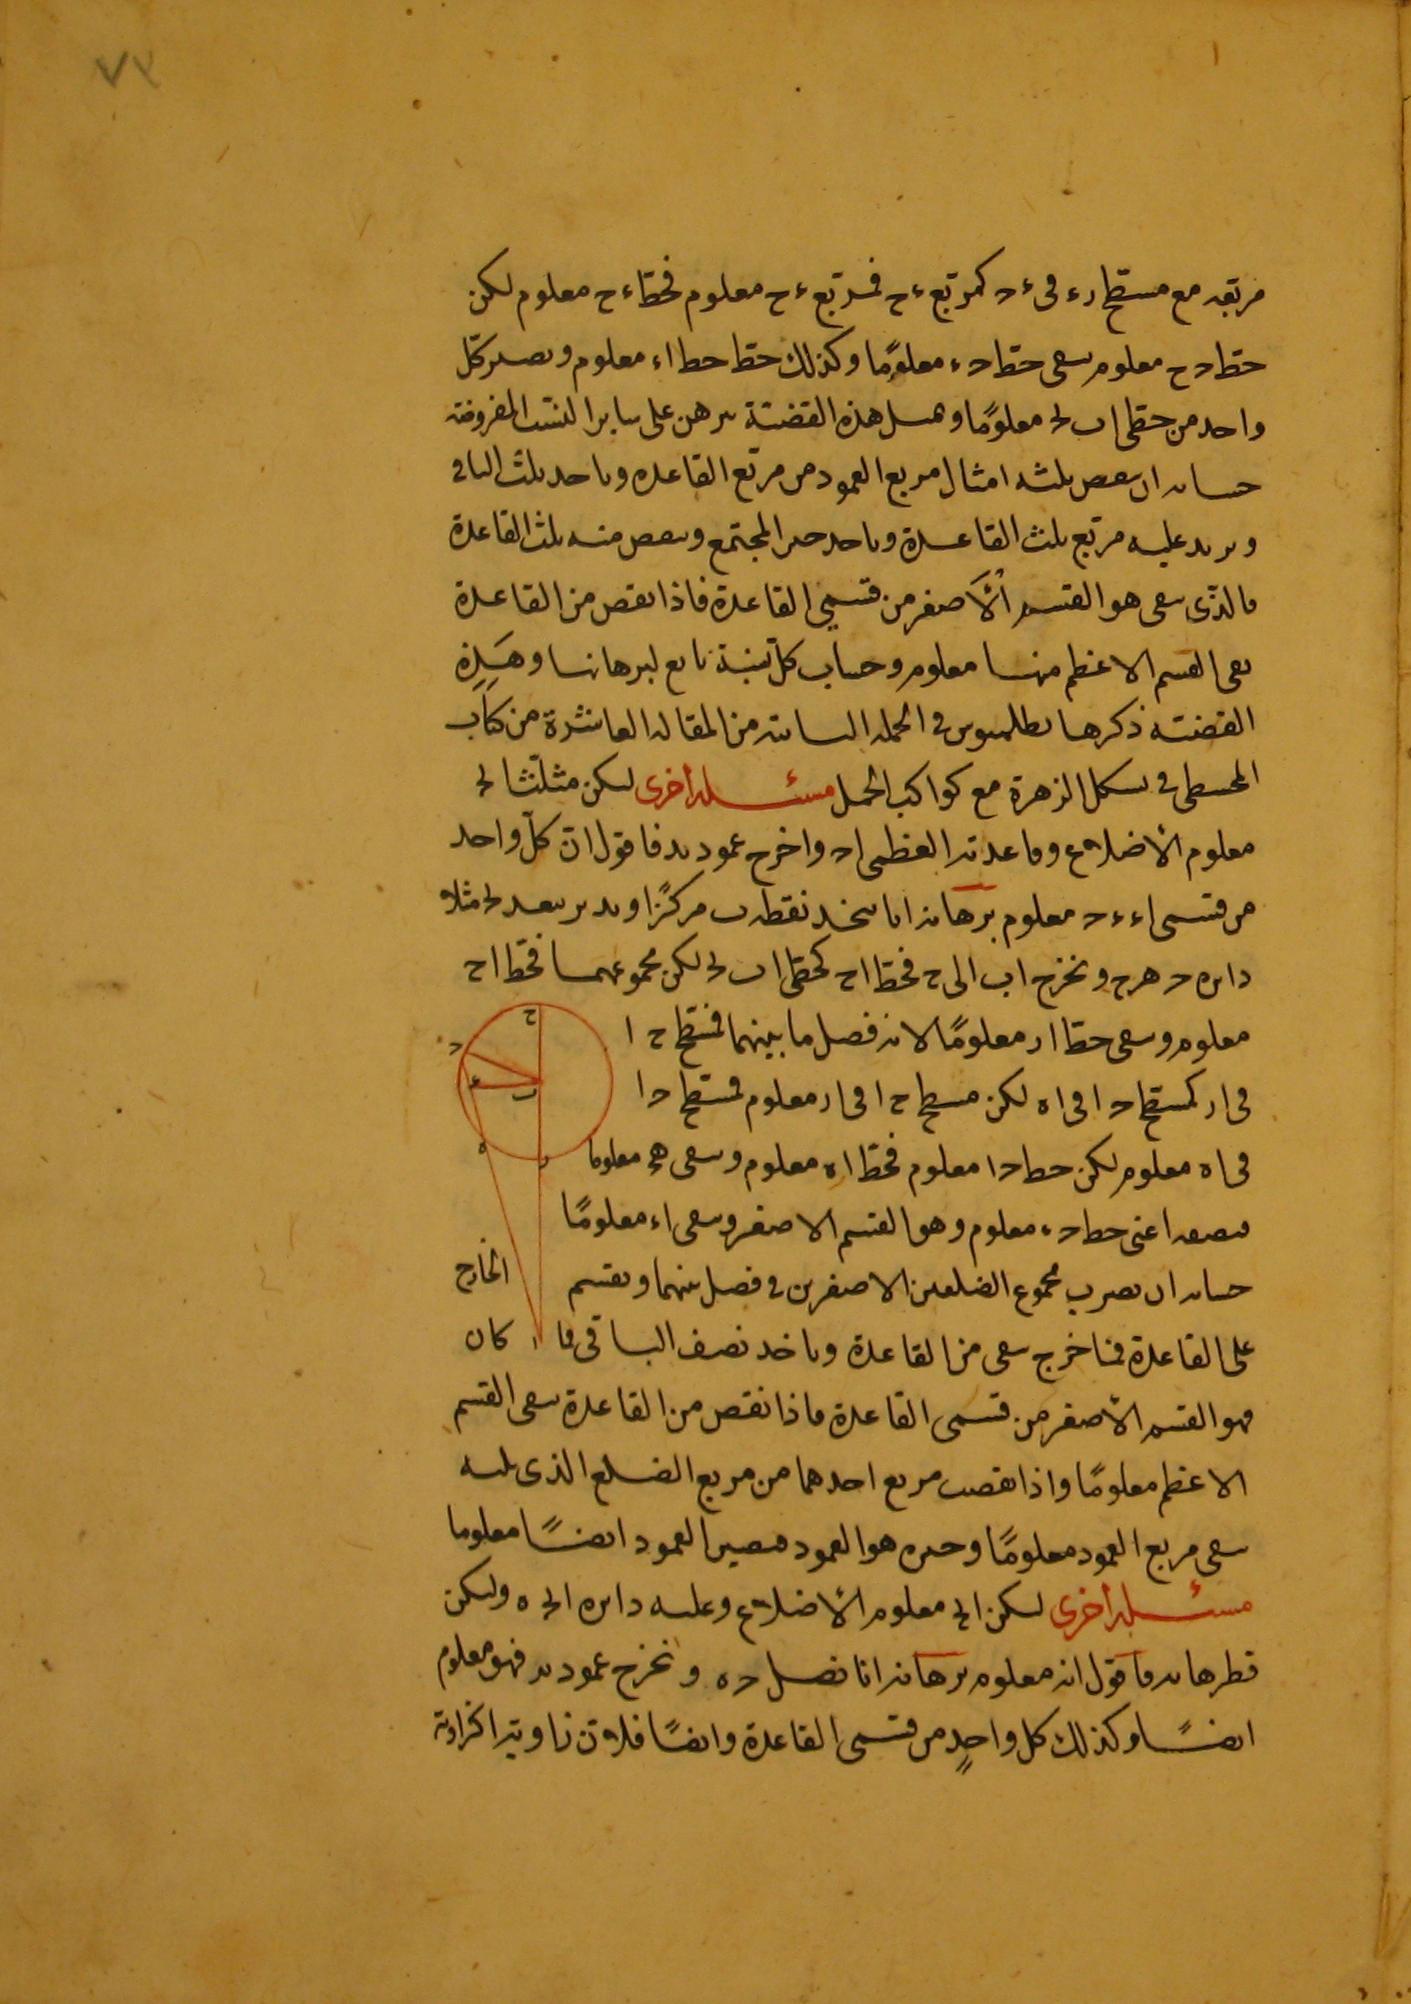 ٧٤
مربعه مع مسطح ا ر ء فى ء ح كمربع ء ح فمربع ء ح معلوم فخط ء ح معلوم لكن
خط د ح معلوم سقى خط د ء معلومًا وكذلك خط حط ا ء معلوم ويصير كل
واحد من خطى ا ب لح معلومًا وبمسل هذه القضية يبرهن على ساير النسب المفروضة
حسابه ان ينقص ثلثه امثال مربع العمود من مربع القاعده وياخذ ثلث الباقى
ويزيد عليه مربع ثلث القاعدة وياخذ جذر المجتمع وينقص منه ثلث القاعدة
فالذى يبقى هو القسم الاصغر من قسمي القاعدة فاذا نقص من القاعدة
بقى القسم الاعظم منها معلوم وحساب كل نسبة تابع لبرهانها وهذه
القضية ذكرها بطلميوس فى الجملة الثامنه من المقاله العاشرة من كتاب
المجسطى فى شكل الزهرة مع كواكب الحمل مسئلة اخرى ليكن مثلثا لح
معلوم الاضلاع وقاعدته العظمى ا ح واخرج عمود ب د فاقول ان كل واحد
من قسمى ا ء ء ح معلوم برهانه انا نتخذ نقطه ب مركزًا وندير ببعد لح مثلا
دايره ح ه ر ح ونخرج ا ب الى ح فخط ا ح كخطى ا ب لح لكن مجموعهما فخط ا ح
معلوم وسقى خط ا ر معلومًا لانه فضل ما بينهما فمسطح ح ا
فى ا ر كمسطح ح ا فى ا ه لكن مسطح ح ا فى ا ر معلوم فمسطح ح ا
فى ا ه معلوم لكن خط ح ا معلوم فخط ا ه معلوم وسقى ه ح معلوما
فنصفه اعنى خط ح ء معلوم وهو القسم الاصغر وسقى ا ء معلومًا
حسابه ان يضرب مجموع الضلعين الاصغرين فى فضل بينهما ويقسم الخارج
على القاعدة فما خرج سقى من القاعدة وياخذ نصف الباقى فما كان
فهو القسم الاصغر من قسمى القاعدة فاذا نقص من القاعدة سقى القسم
الاعظم معلومًا واذا نقصت مربع احدهما من مربع الضلع الذى يليه
سقى مربع العمود معلومًا وجذره هو العمود فيصير العمود ايضًا معلوما
مسئلة اخرى ليكن الح معلوم الاضلاع وعليه دايره الح ه وليكن
قطرها ب ه فاقول انه معلوم برهانه انا نصل ح ه ونخرج عمود ب د فهو معلوم
ايضًا وكذلك كل واحدٍ من قسمى القاعدة وايضًا فلان زاوية ا كزاوية